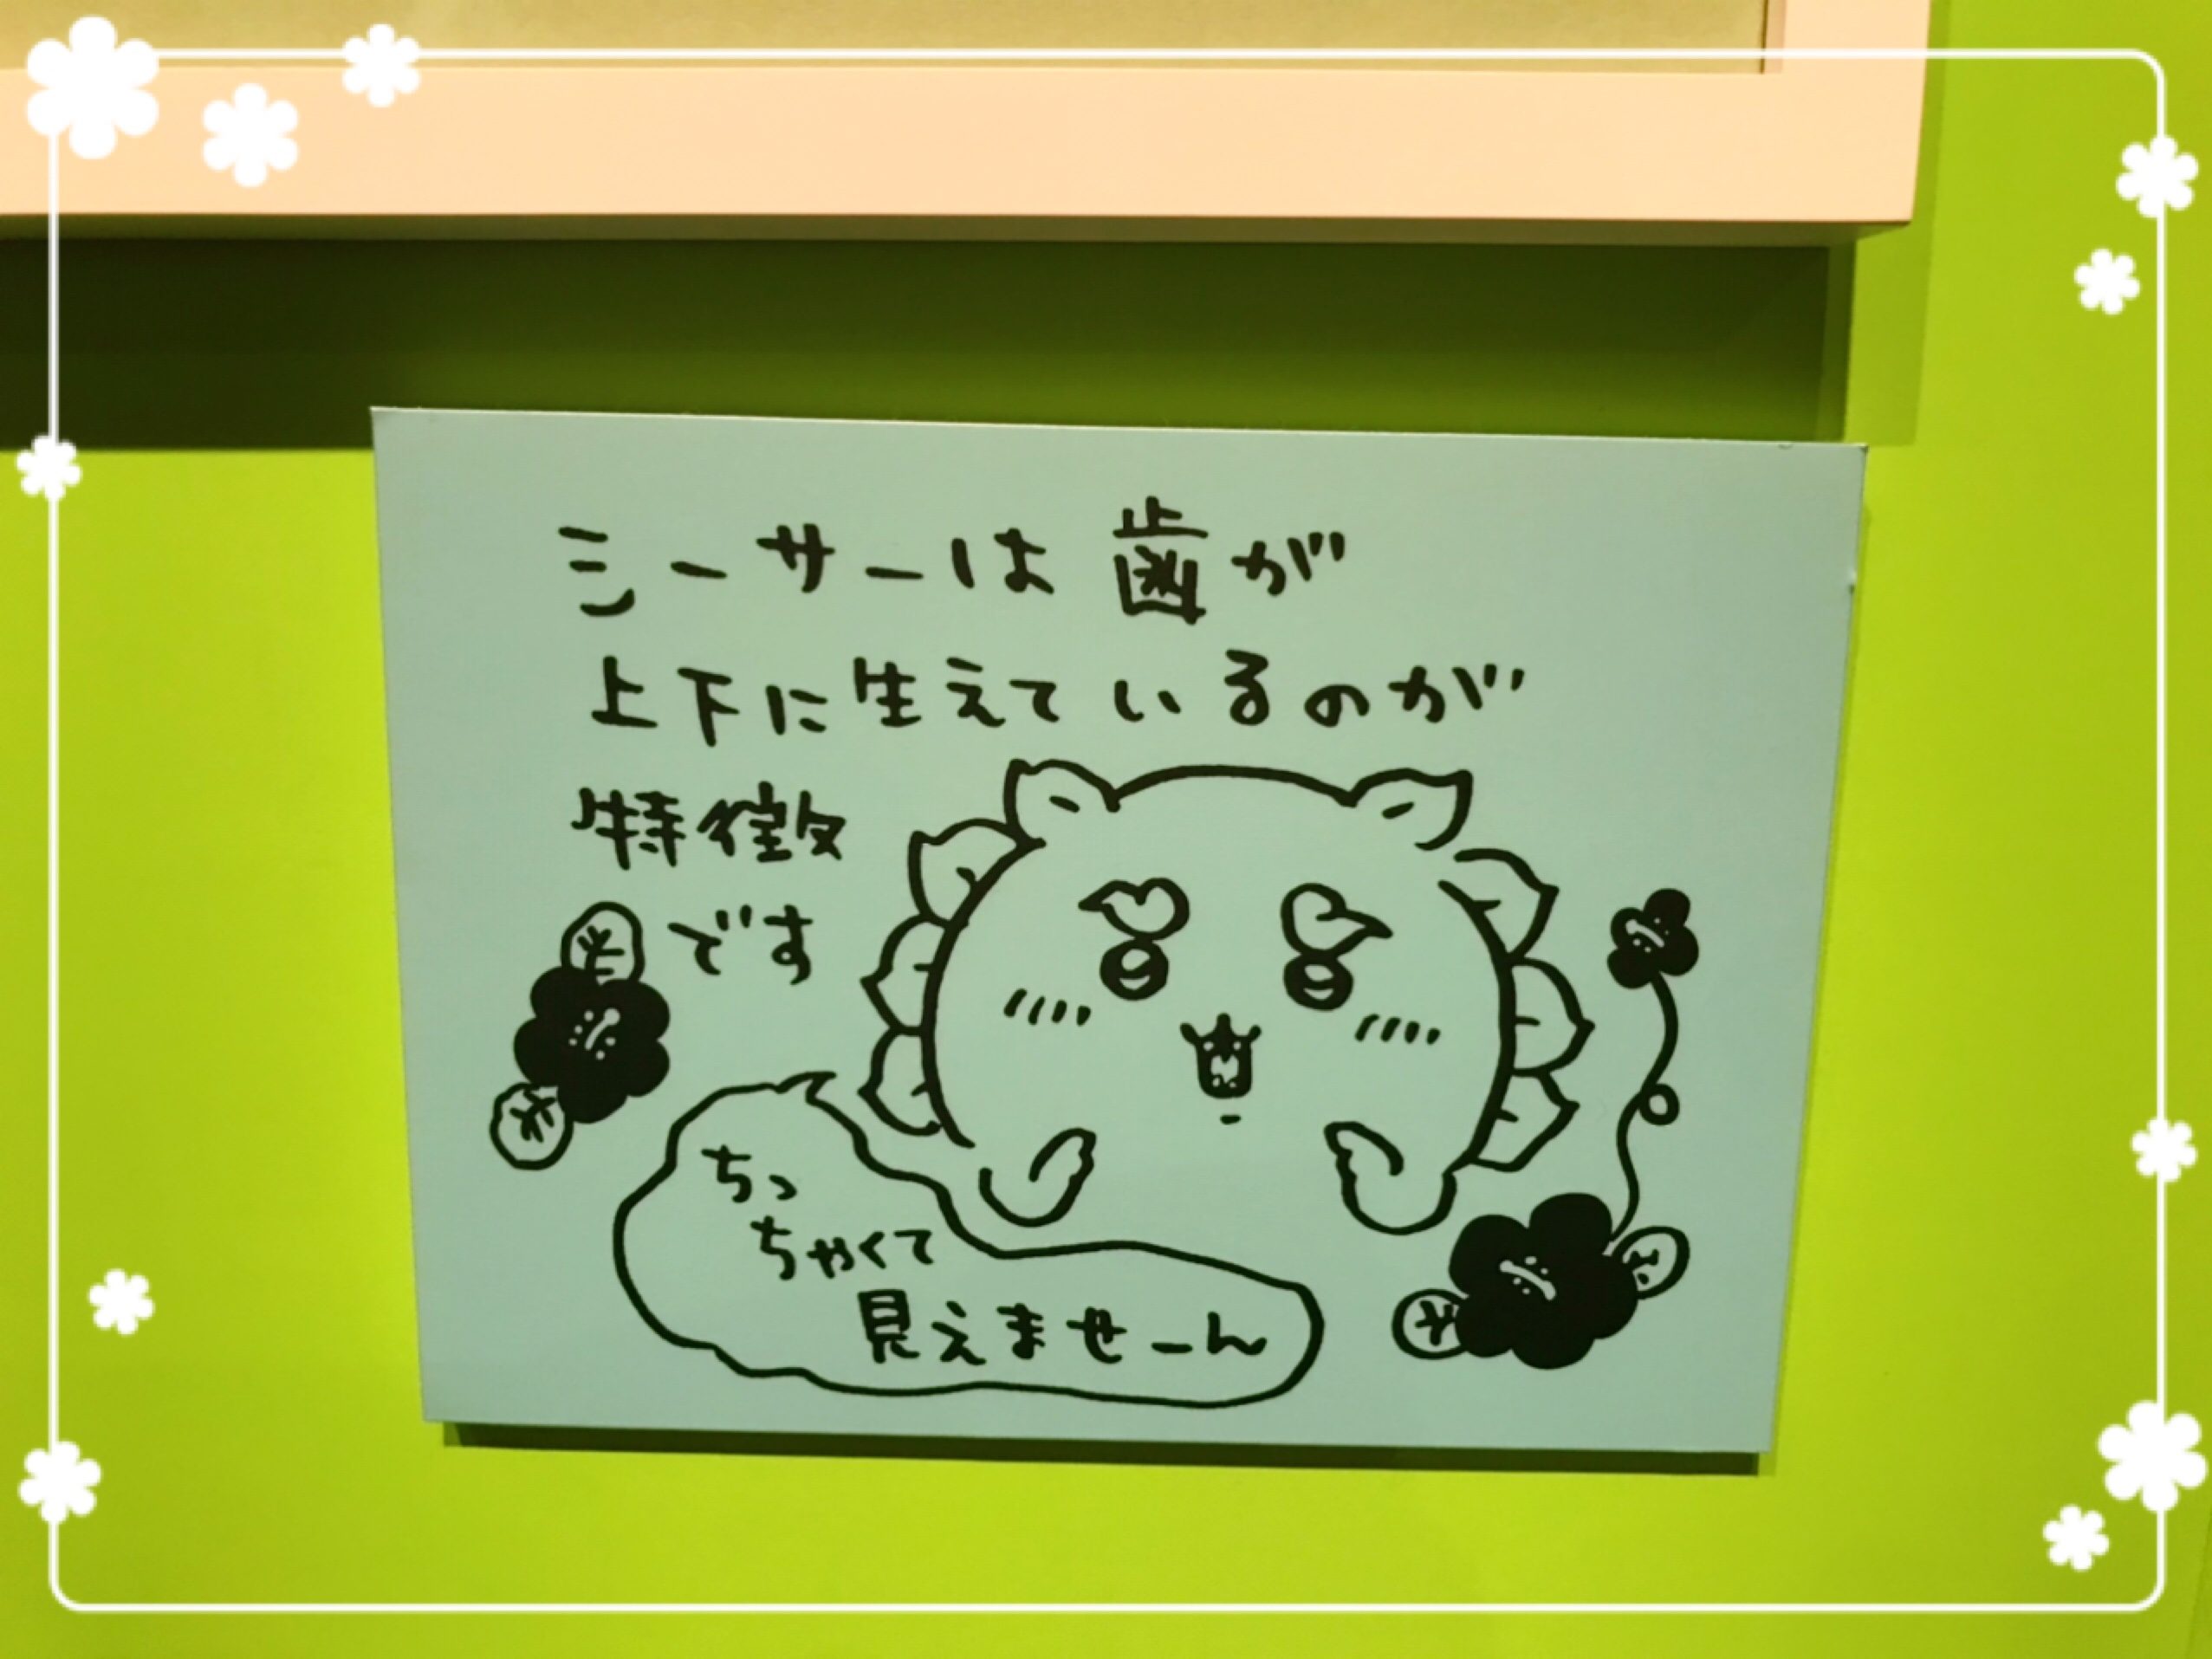 シーサーは歯が
上下に生えているのが
特徴
です
ちっ
ちゃくて
見えませーん